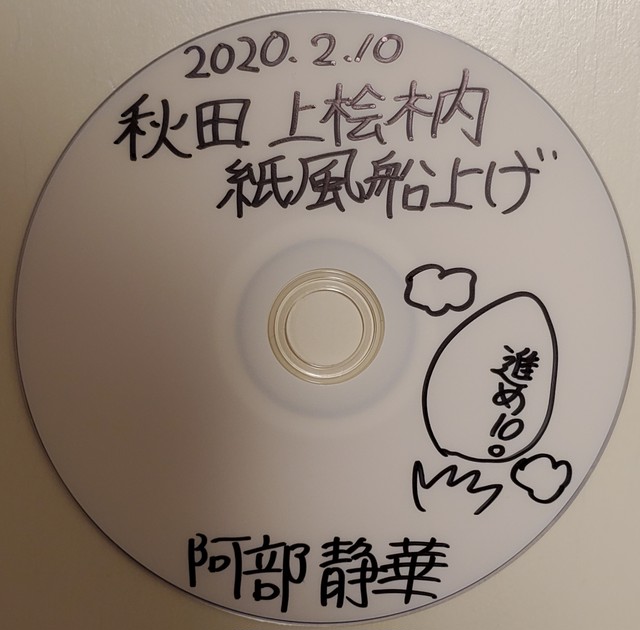 2020.2.10
秋田 上桧木内
紙風船上げ
進め10。
阿部静華